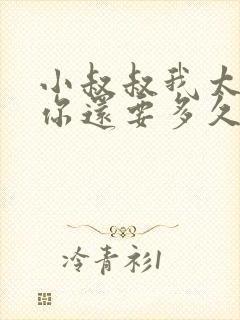 小叔叔我大
你還要多久
冷青衫1